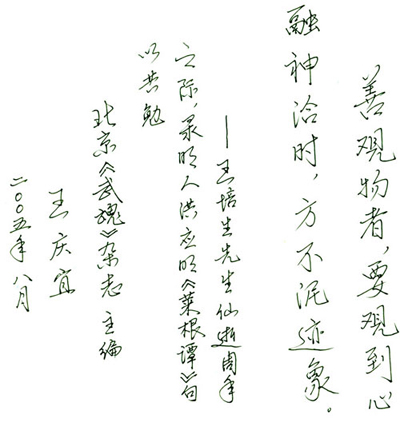 善观物者，要观到心
融神洽时，方不泥迹象。
——王培生先生仙逝周年
之际，录明人洪应明《菜根谭》句
以共勉
北京《武魂》杂志 主编
王庆宜
二〇〇五年八月